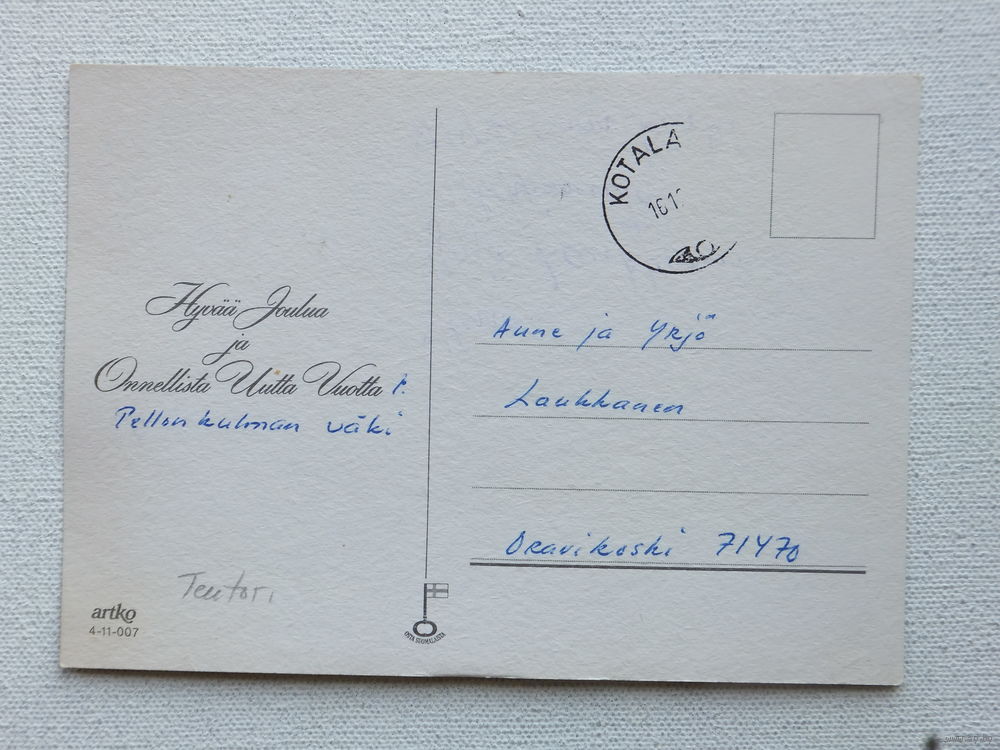 Hyvää Joulua
ja
Onnellista Uutta Vuotta !.
Pellonkulman väki
Tentori
artko
4-11-007
OSTA SUOMALAISTA
KOTALA
161
Aune ja Yrjö
Laukkanen
Oravikoski 71470